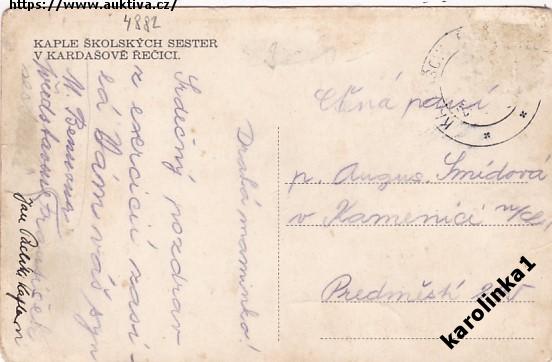 https://www.auktiva.cz/
4882
KAPLE ŠKOLSKÝCH SESTER
V KARDAŠOVĚ ŘEČICI.
Drahá maminko!
Srdečný pozdrav
z exercicií zasí-
lá Vám váš syn
M. Benova
představená
Jan kaplan
Ctěná paní
p. Smídová
v Kamenici n/L.
Předměstí
karolinka1